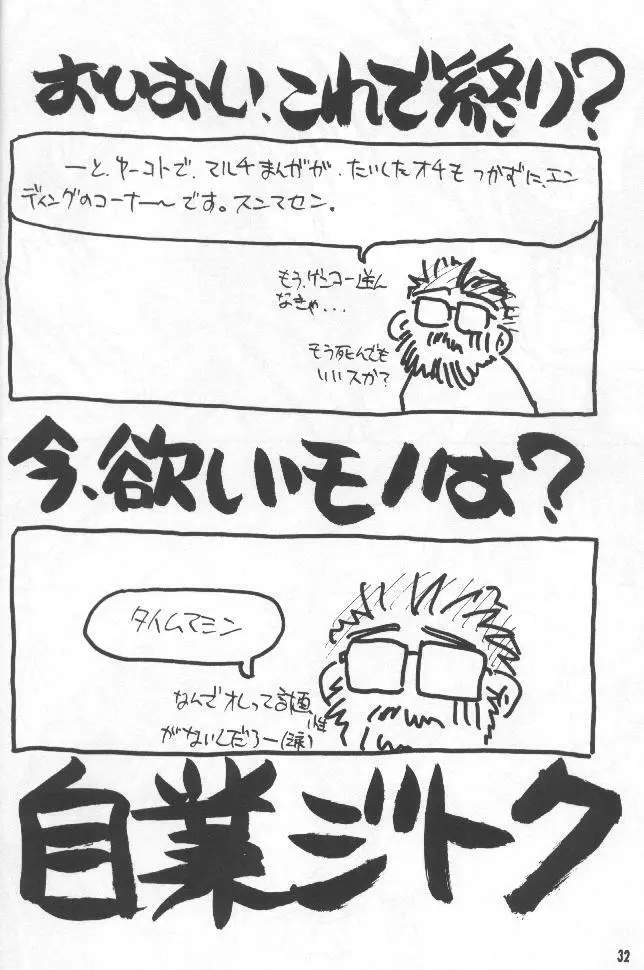 おいおい、これで終り？
ーと、ゆーコトで、マルチまんがが、たいしたオチもつかずに、エン
ディングのコーナー〜です。スンマセン。
もう、ゲンコー進ん
なきゃ...
もう死んでも
いいスか？
今、欲しいモノは？
タイムマシン
なんでオレって計画性
がないんだろー(涙)
自業ジトク
32